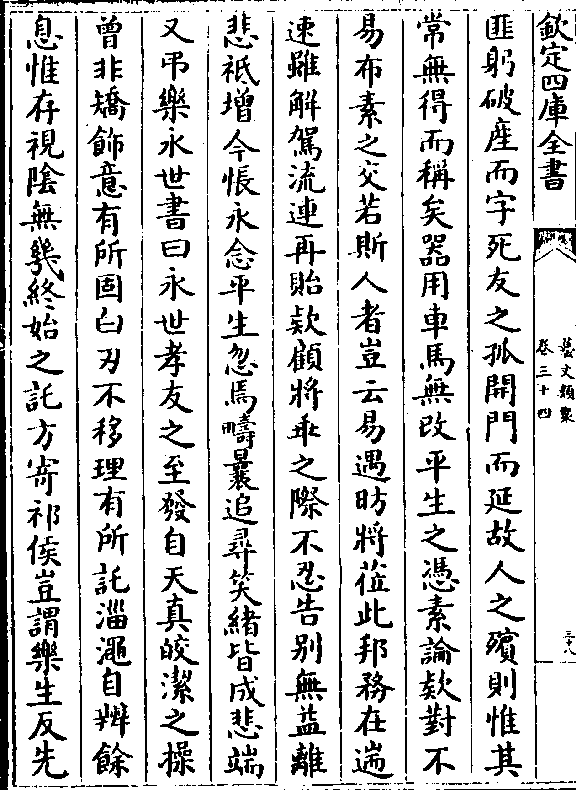 欽定四庫全書
藝文類聚
卷三十四
三十八
匪躬破産而字死友之孤開門而延故人之殯則惟其
常無得而稱矣器用車馬無改平生之憑素論欵對不
易布素之交若斯人者豈云易遇昉將莅此邦務在遄
速雖解駕流連再貽欵顧將乖之際不忍告别無益離
悲祇增今悵永念平生忽焉疇曩追尋笑緒皆成悲端
又弔樂永世書曰永世孝友之至發自天真皎潔之操
曾非矯飾意有所固白刃不移理有所託淄澠自辨餘
息惟存視陰無幾終始之託方寄祁侯豈謂樂生反先